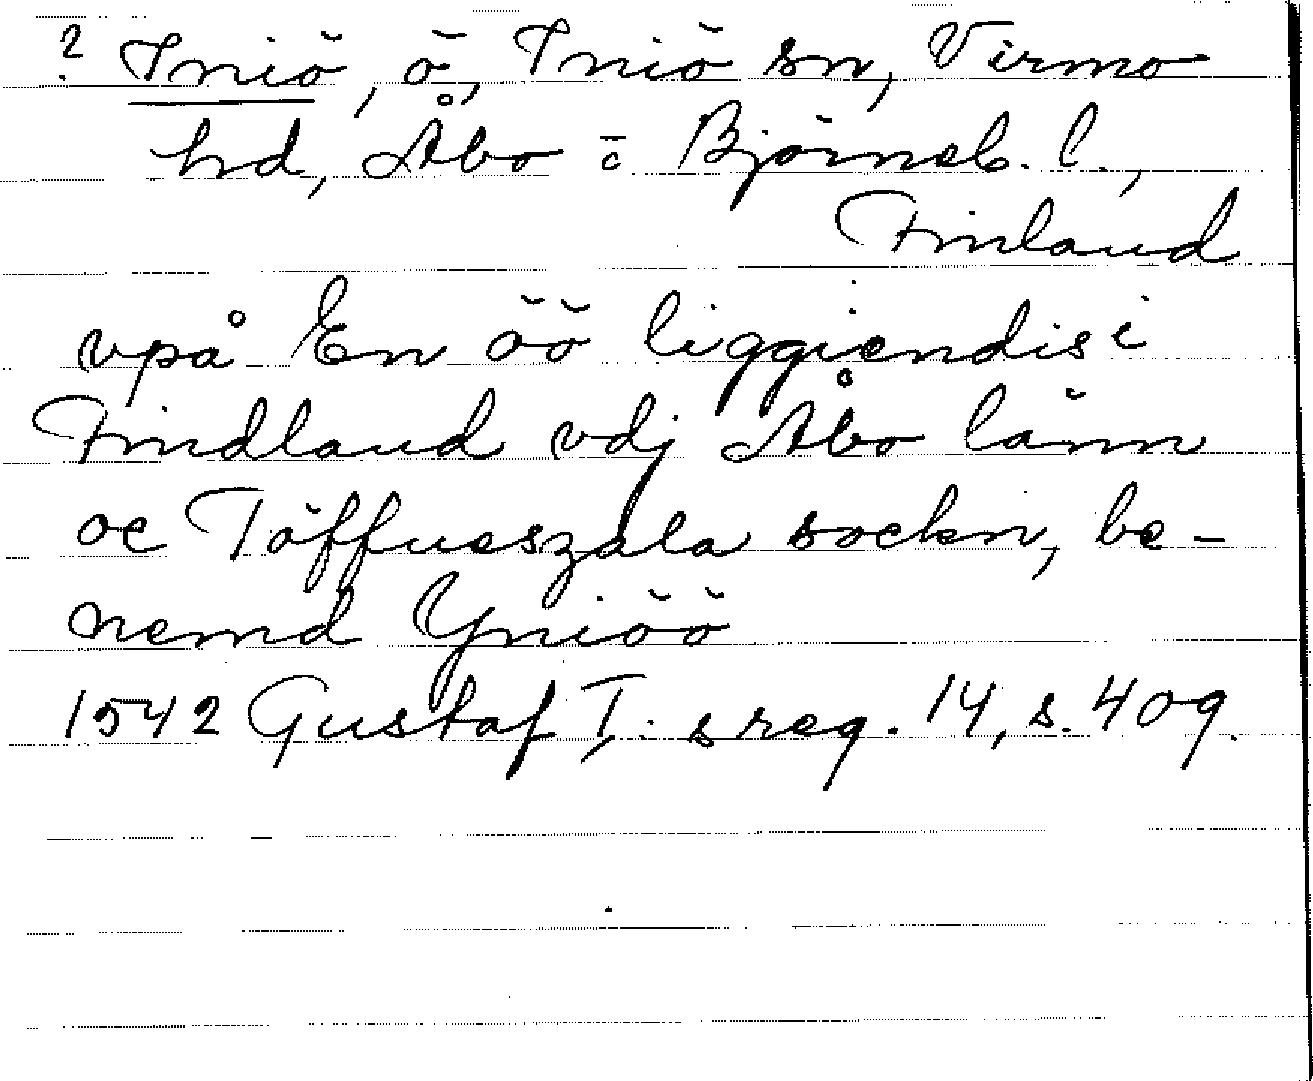 ? Iniö, ö, Iniö sn, Virmo
hd, Åbo o. Björneb. l.,
Finland
vpå En öö liggiendis i
Findland vdj Åbo länn
oc Töffueszala sockn, be-
nemd Yniöö
1542 Gustaf I:s reg. 14, s. 409.